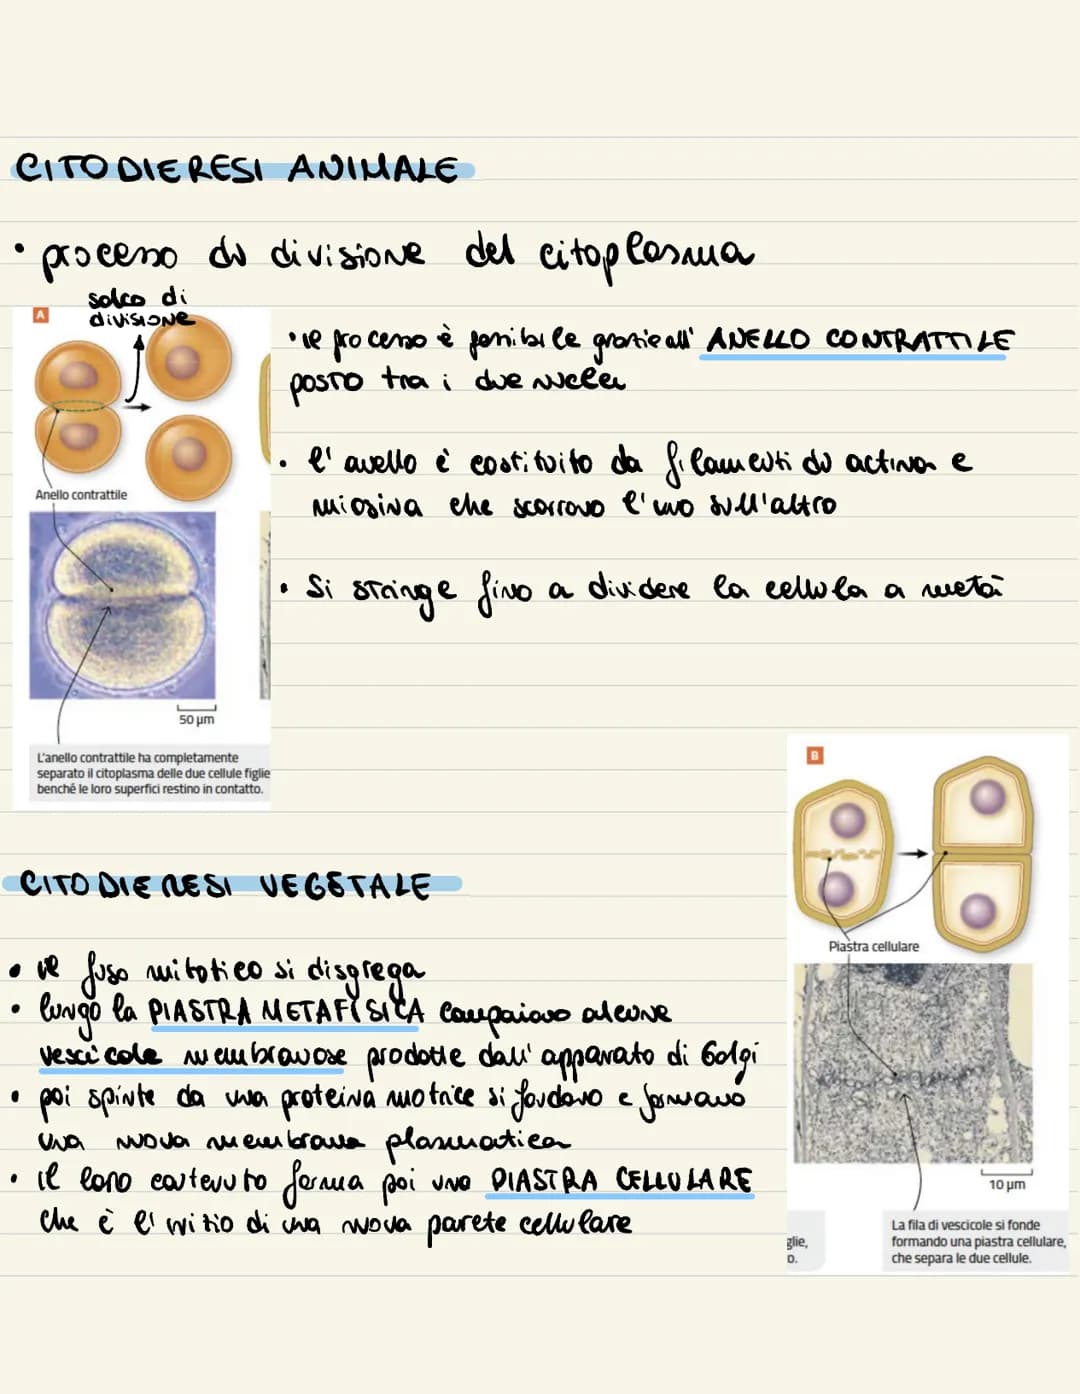 CITODIERESI ANIMALE
• processo di divisione del citoplasma
solco di
divisione
A
• il processo è possibile grazie all' ANELLO CONTRATTILE
posto tra i due nuclei
Anello contrattile
• l' anello è costituito da filamenti di actina e
miosina che scorrono l'uno sull'altro
• Si stringe fino a dividere la cellula a metà
50 µm
L'anello contrattile ha completamente
separato il citoplasma delle due cellule figlie
benché le loro superfici restino in contatto.
B
Piastra cellulare
CITODIERESI VEGETALE
• il fuso mitotico si disgrega
• lungo la PIASTRA METAFISICA compaiono alcune
vescicole membranose prodotte dall' apparato di Golgi
• poi spinte da una proteina motrice si fondono e formano
una nuova membrana plasmatica
• il loro contenuto forma poi una PIASTRA CELLULARE
che è l' inizio di una nuova parete cellulare
10 µm
glie,
o.
La fila di vescicole si fonde
formando una piastra cellulare,
che separa le due cellule.